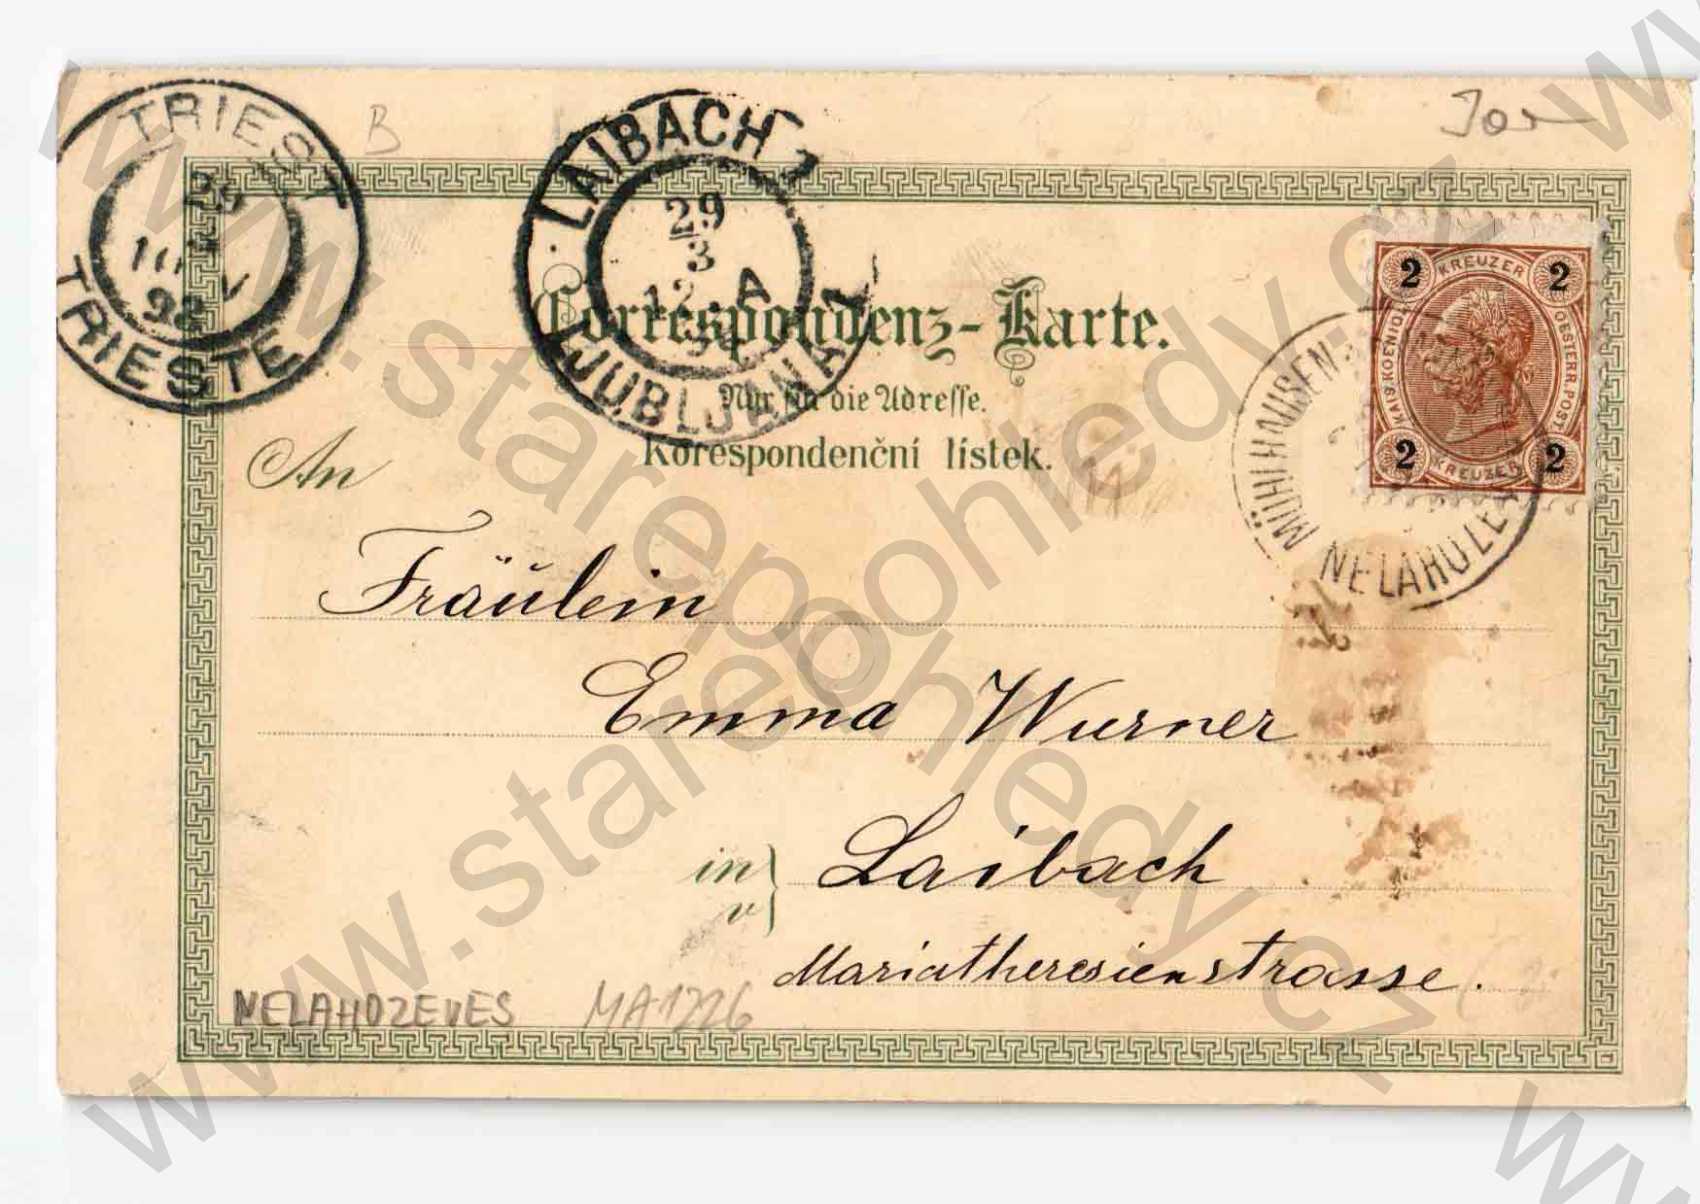 TRIEST
TRIESTE
B
LAIBACH 1
29
3
LJUBLJANA 1
2 KREUZER 2
KAIS. KOENIGL. OESTERR. POST
2 KREUZER 2
MÜHLHAUSEN
NELAHOZE
Correspondenz-Karte.
Nur für die Adresse.
Korespondenční lístek.
An
Fräulein
Emma Wurner
in
v
Laibach
Mariatheresienstrasse.
NELAHOZEVES MA1226
www.starepohledy.cz
www.starepohledy.cz